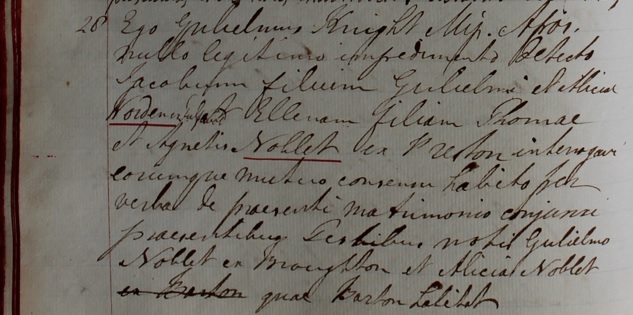 28 Ego Gulielmus Knight Miss. Apos.
nullo legitimo impedimento detecto
Jacobum filium Gulielmi et Aliciae
Norden et Ellenam filiam Thomae
et Agnetis Noblet ex Preston interrogavi
eorumque mutuo consensu habito per
verba de praesenti matrimonio conjunxi
praesentibus Testibus notis Gulielmo
Noblet ex Broughton et Alicia Noblet
ex Barton quae Barton habitat